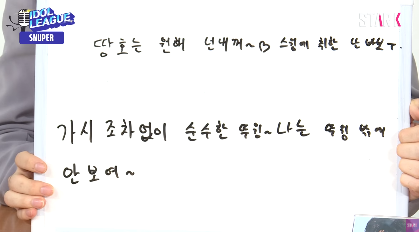 IDOL LEAGUE
SNUPER
STAR K
땅호는 원해 넌내꺼~B 스윙에 취한 난 바보 ㅜ.
가시 조차없이 순수한 뚜힘~나는 뚜힘 밖에
안 보여~